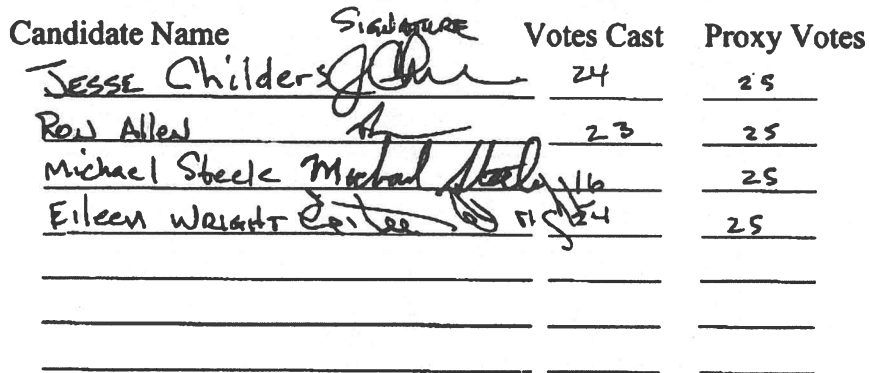 Candidate Name SIGNATURE Votes Cast Proxy Votes
Jesse Childers 24 25
Ron Allen 23 25
Michael Steele Michael Steele 16 25
Eileen Wright Eileen 24 25